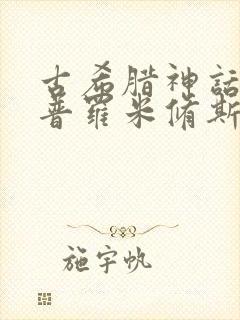 古希腊神话
普罗米修斯
施宇帆